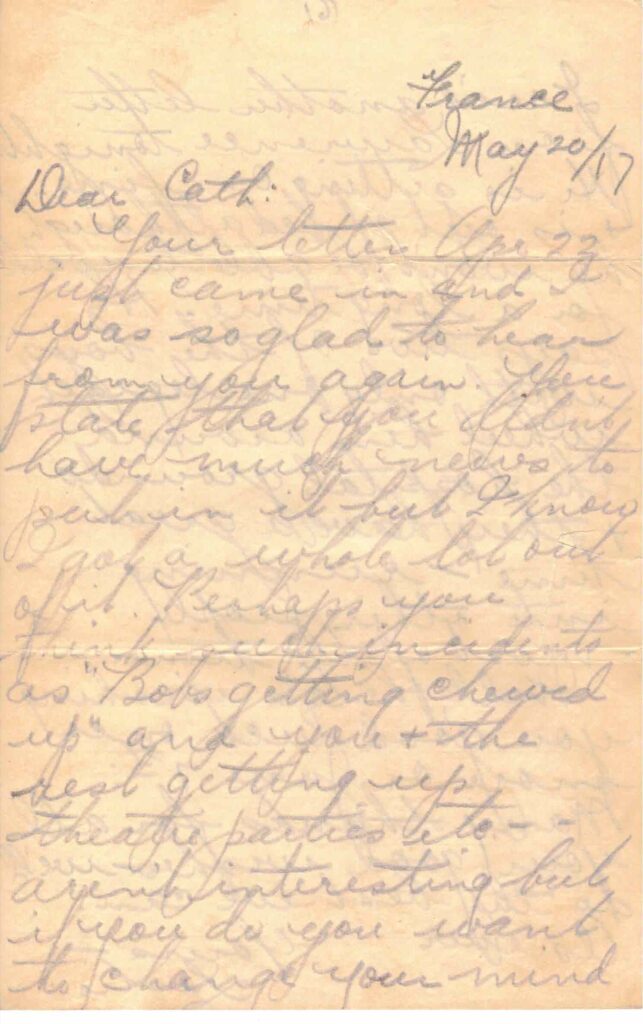 France
May 20/17
Dear Cath:
Your letter Apr 23
just came in and I
was so glad to hear
from you again. You
state that you didnt
have much news to
put in it but I know
I got a whole lot out
of it. Perhaps you
think such incidents
as "Bobs getting chewed
up" and you + the
rest getting up
theatre parties etc - -
arent interesting but
if you do you want
to change your mind